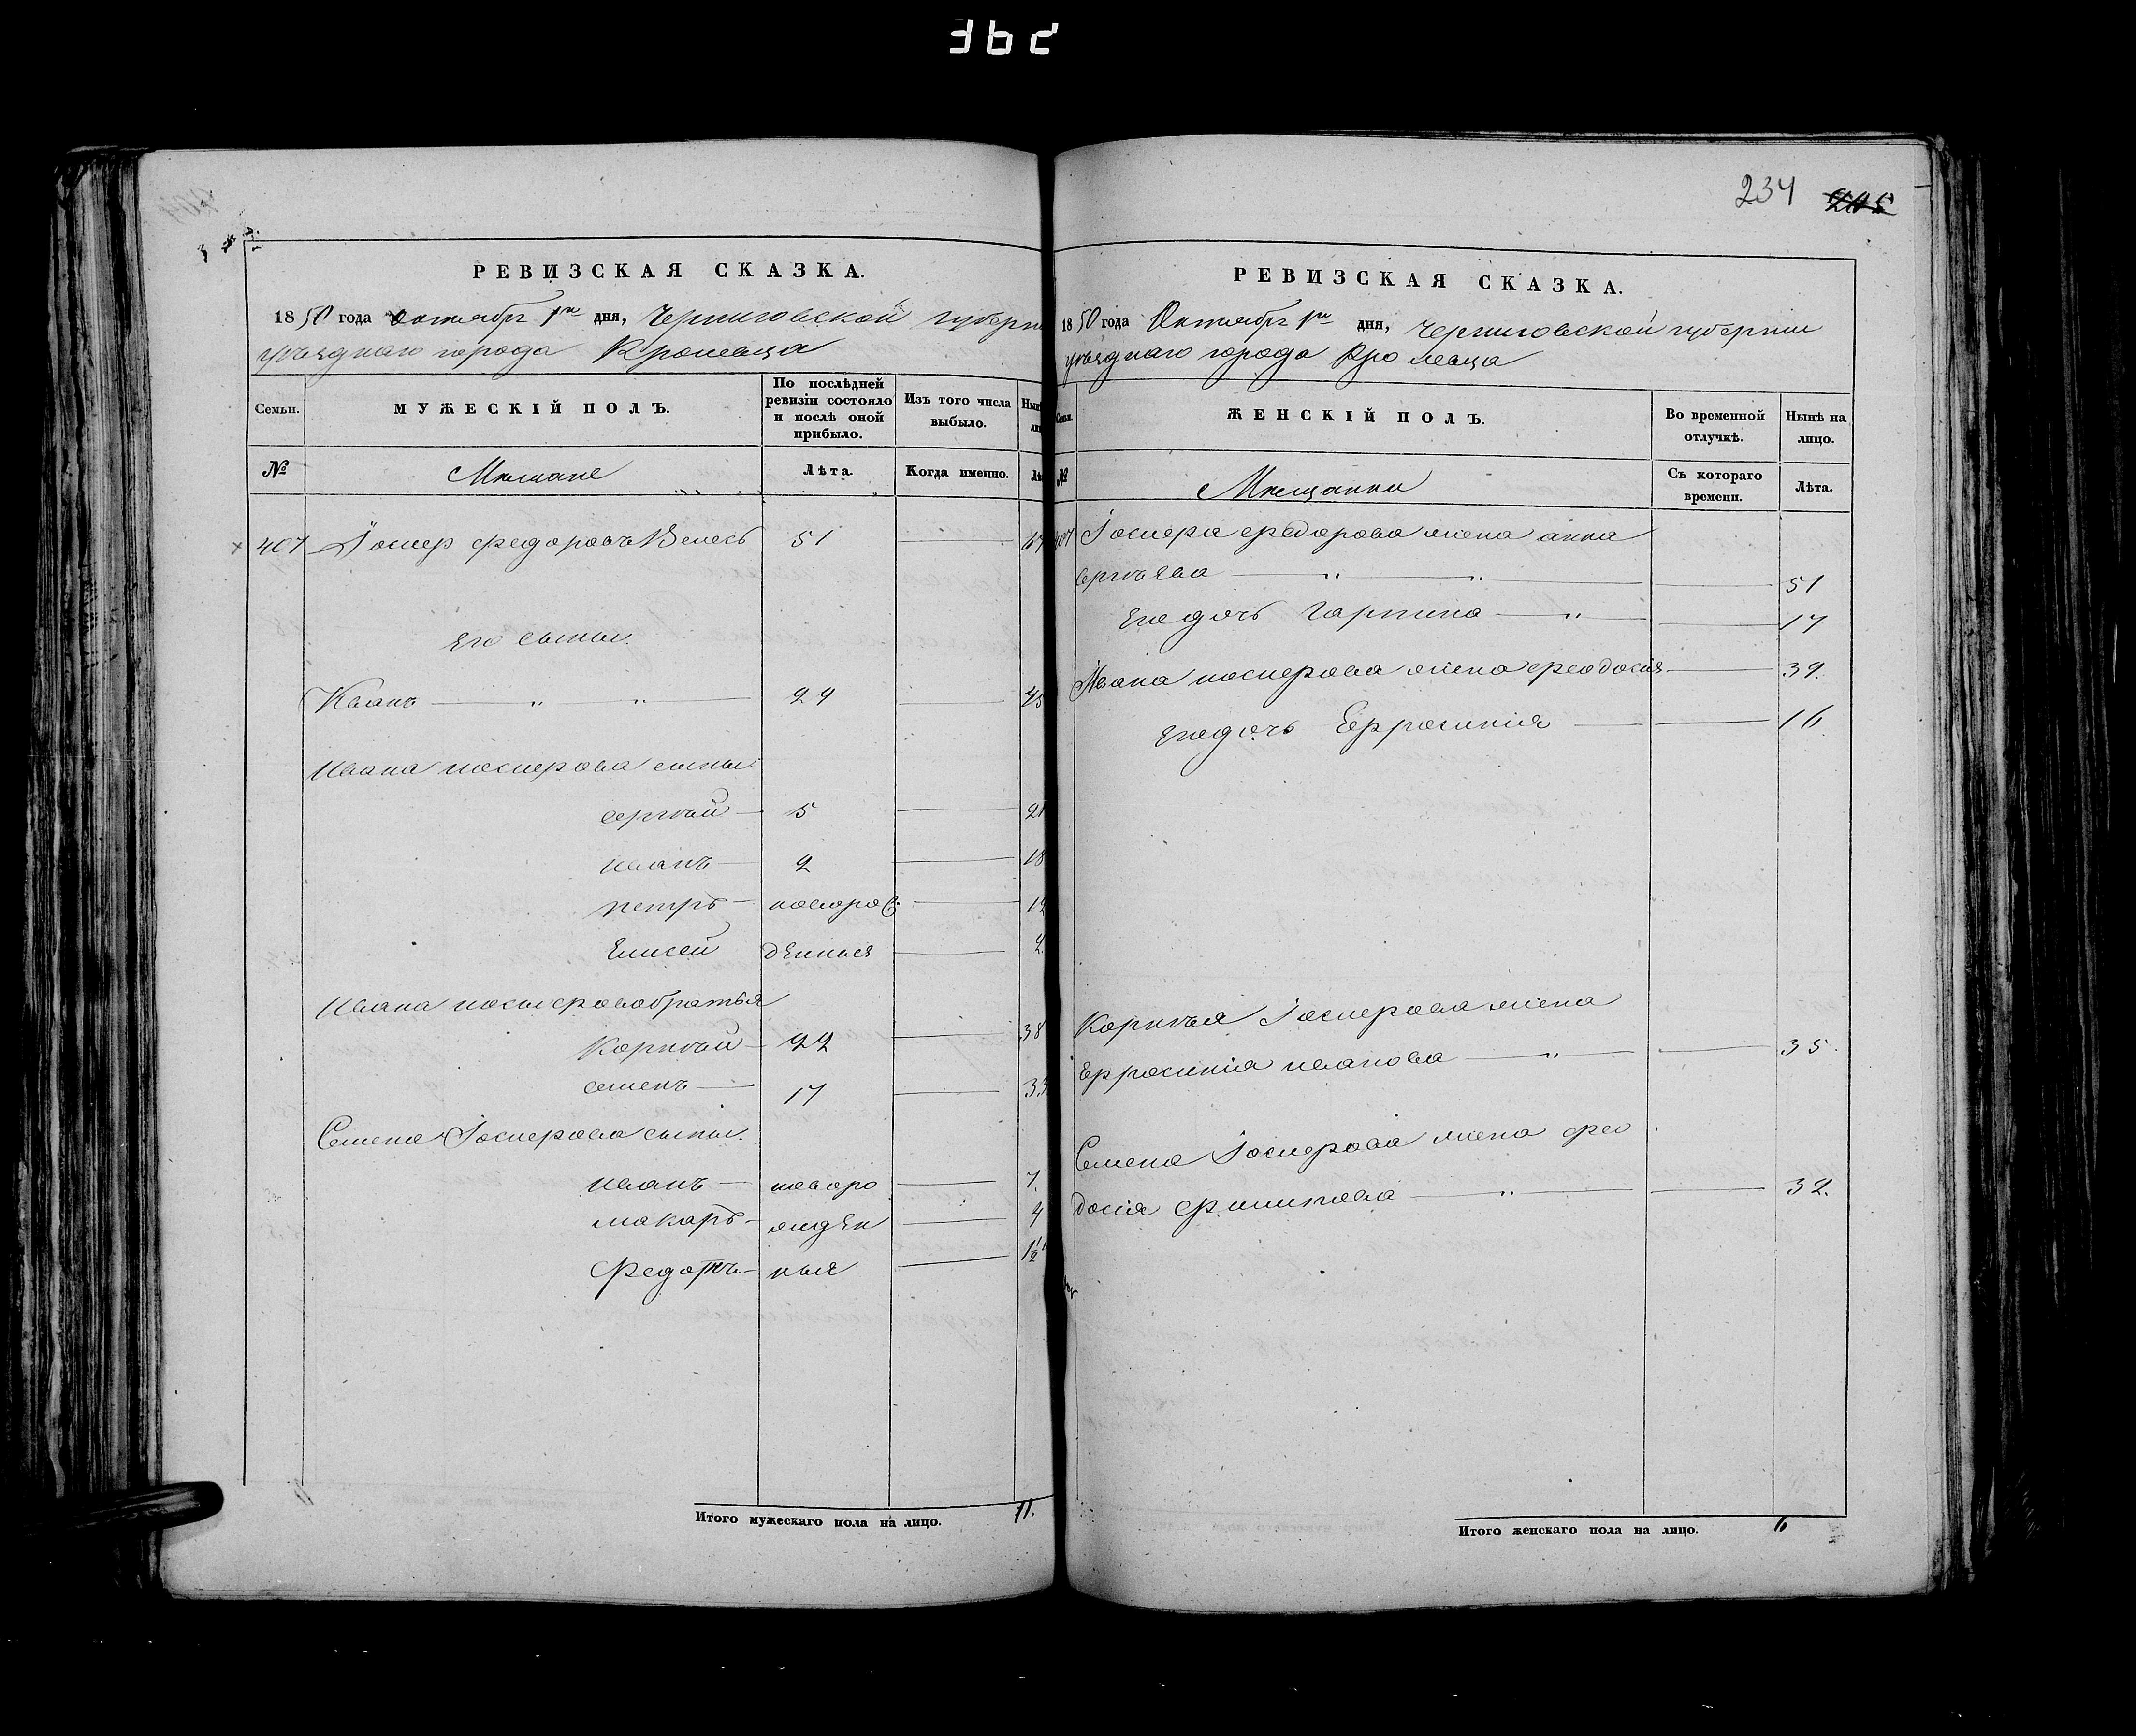 234 205
РЕВИЗСКАЯ СКАЗКА.
1850 года Октября 1го дня, Черниговской губерни
уѣзднаго города Кролевца
Семьи.
МУЖЕСКІЙ ПОЛЪ.
По послѣдней ревизіи состояло и послѣ оной прибыло.
Изъ того числа выбыло.
№
Мещане
Лѣта.
Когда именно.
407 Іосиер федоровъ 51 67
Его сыны.
Иванъ 29 45
Ивана иосиерова сыны
сергѣй 5 21
иванъ 2 18
петръ новоро 12
Елисей денныя 2.
Ивана иосиерова братья
Корнѣй 22 38
семенъ 17 33
Семена Іосиерова сыны.
иванъ новоро 7.
макаръ жден 4
Федотъ ныя 1 1/2
Итого мужескаго пола на лицо. 11.
РЕВИЗСКАЯ СКАЗКА.
1850 года Октября 1го дня, Черниговской губернии
уѣзднаго города Кролевца
Семьи.
ЖЕНСКІЙ ПОЛЪ.
Во временной отлучкѣ.
Нынѣ на лицо.
№
Мещанки
Съ котораго времени.
Лѣта.
407 Іосиера федорова жена анна
сергѣева 51
Ее дочь Гарпина 17
Ивана иосиерова жена феодосія 39.
Ее дочь Ефросинія 16.
Корнѣя Іосиерова жена
Ефросинія иванова 35.
Семена Іосиерова жена фео
досія филипова 32.
Итого женскаго пола на лицо. 6